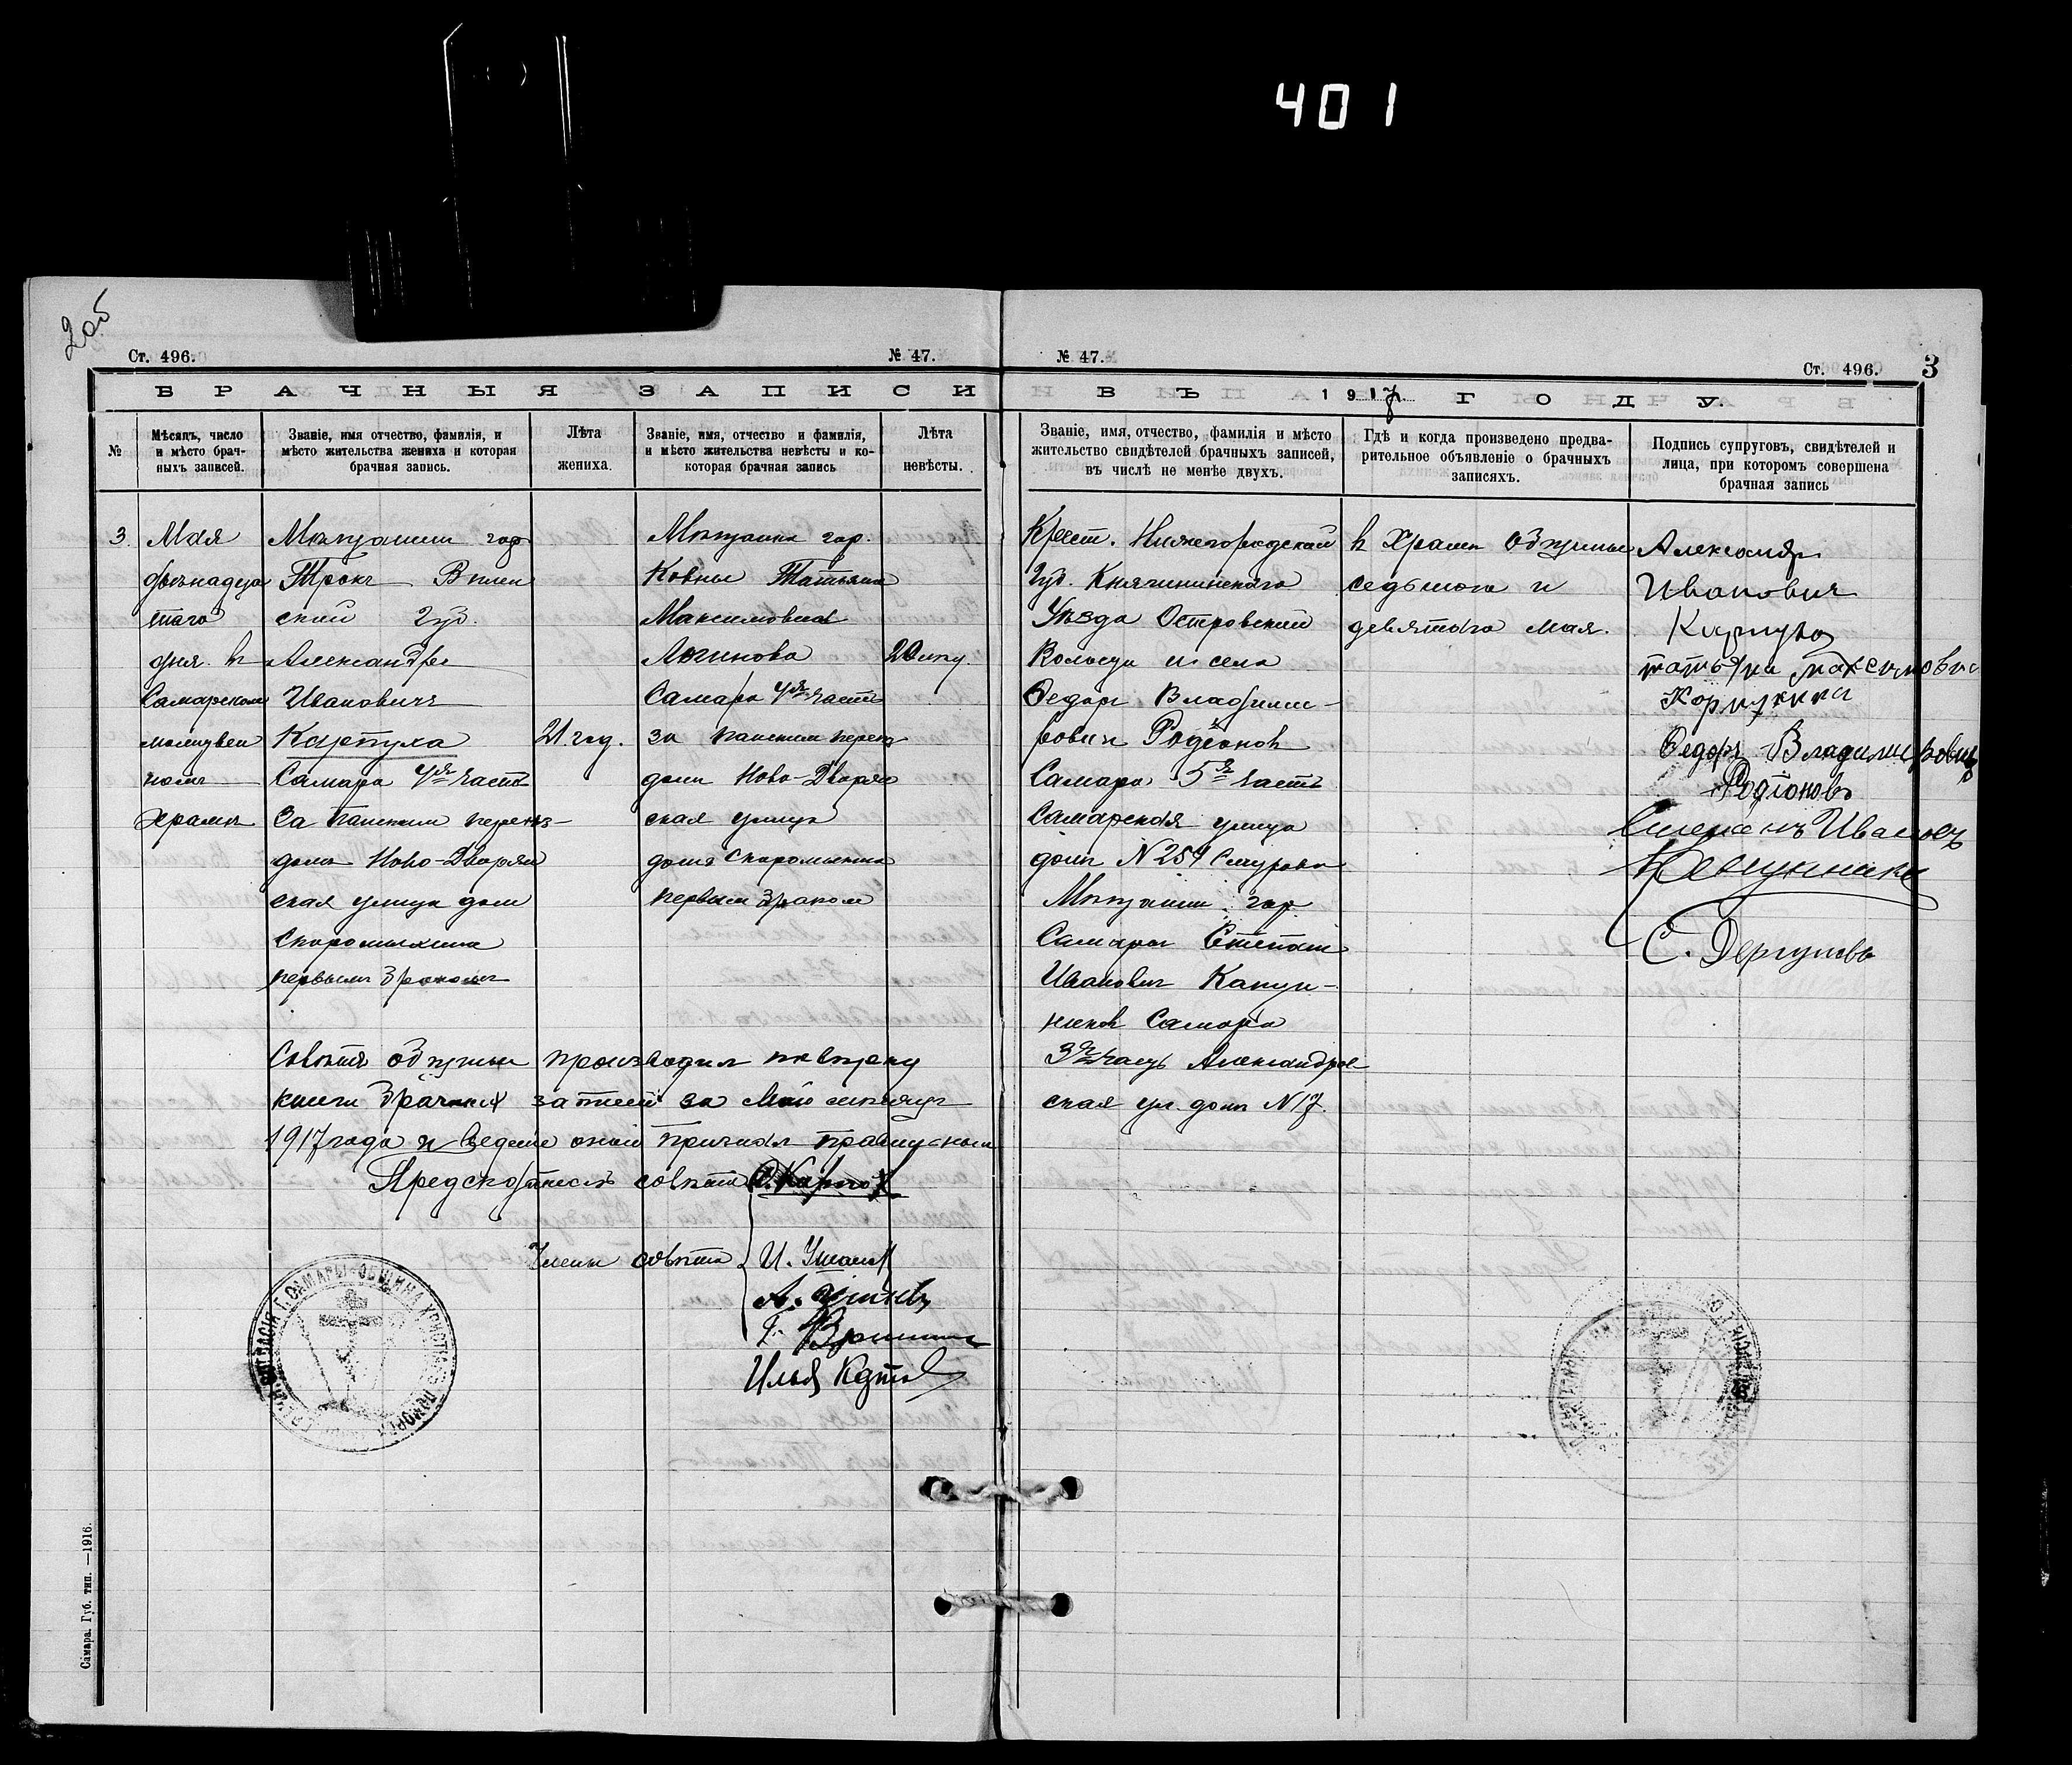 401
2об
Ст. 496.
№ 47.
№ 47.
Ст. 496.
3
БРАЧНЫЯ ЗАПИСИ
ВЪ 1917 ГОДУ.
№
Мѣсяцъ, число и мѣсто брач-
ныхъ записей.
Званіе, имя отчество, фамилія, и
мѣсто жительства жениха и которая
брачная запись.
Лѣта
жениха.
Званіе, имя, отчество и фамилія,
и мѣсто жительства невѣсты и ко-
которая брачная запись
Лѣта
невѣсты.
Званіе, имя, отчество, фамилія и мѣсто
жительство свидѣтелей брачныхъ записей,
въ числѣ не менѣе двухъ.
Гдѣ и когда произведено предва-
рительное объявленіе о брачныхъ
записяхъ.
Подпись супруговъ, свидѣтелей и
лица, при которомъ совершена
брачная запись
3.
Мая
двѣнадца
таго
дня. в
Самарском
молитвен
номъ
храмѣ
Мѣщанин гор
Трокъ Вилен
ской губ.
Александръ
Ивановичъ
Карпуха
Самара 4я часть
За Панским переѣз-
домъ Ново-Дворян
ская улица дом
Скоромыкина
первымъ браком
21. год.
Мѣщанка гор.
Ковны Татьяна
Максимовна
Логинова
Самара 4я часть
за панским переѣз
дом Ново-Дворян
ская улица
дома Скоромыкина
первым браком
20
Крест. Нижегородской
Губ. Княгининскаго
Уѣзда Островской
Волости и села
Федор Владими-
рович Родіонов
Самара 5я часть
Самарская улица
дом N 254
Мѣщанин гор.
Самары Степан
Иванович Капун-
ников Самара
3я часть Александров
ская ул. дом N 17.
в Храмѣ общины
седьмого и
девятого мая.
Александр
Иванович
Карпуха
татьяна максимовна
Федоръ Владимировичъ
Родіоновъ
Степанъ Ивановъ
Капунников
С. Дергуновъ
Совѣтъ общины производил повѣрку
книги брачных записей за Май мѣсяцъ
1917 года и ведение оной признал правильным
Предсѣдатель совѣта Ф. Карпов
Члены совѣта
И. Ушанов
Илья
Г. САМАРЫ ОБЩИНА ХРИСТІАНЪ ПОМОР
Самара. Губ. тип. —1916.